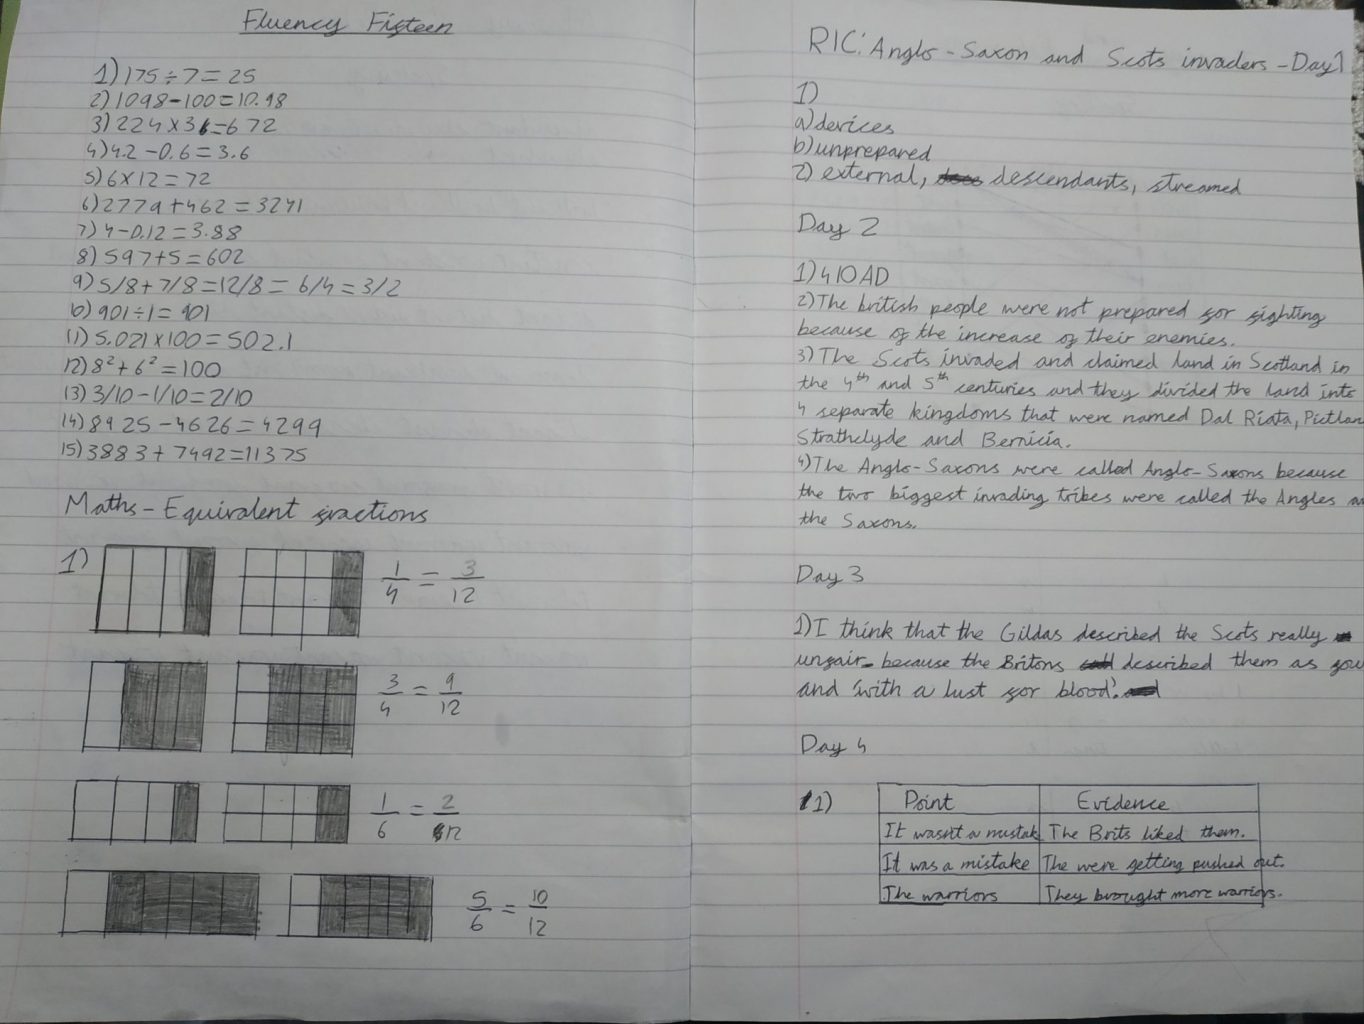 Fluency Fifteen
1) 175÷7=25
2) 1098-100=10.98
3) 224x3=672
4) 4.2-0.6=3.6
5) 6x12=72
6) 2779+462=3241
7) 4-0.12=3.88
8) 597+5=602
9) 5/8+7/8=12/8=6/4=3/2
10) 901÷1=901
11) 5.021x100=502.1
12) 8²+6²=100
13) 3/10-1/10=2/10
14) 8925-4626=4299
15) 3883+7492=11375
Maths-Equivalent fractions
1) 1/4 = 3/12
3/4 = 9/12
1/6 = 2/12
5/6 = 10/12
RIC: Anglo-Saxon and Scots invaders-Day 1
1)
a) devices
b) unprepared
2) external, descendants, streamed
Day 2
1) 410AD
2) The british people were not prepared for fighting
because of the increase of their enemies.
3) The Scots invaded and claimed land in Scotland in
the 4th and 5th centuries and they divided the land into
4 separate kingdoms that were named Dal Riata, Pictlan
Strathclyde and Bernicia.
4) The Anglo-Saxons were called Anglo-Saxons because
the two biggest invading tribes were called the Angles a
the Saxons.
Day 3
1) I think that the Gildas described the Scots really
unfair because the Britons described them as fou
and 'with a lust for blood'.
Day 4
1) Point Evidence
It wasnt a mistak The Brits liked them.
It was a mistake The were getting pushed out.
The warriors They brought more warriors.